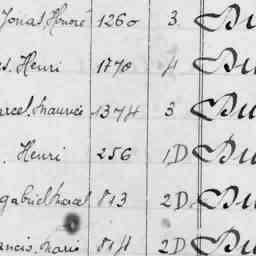 Jonas, Honoré 1260 3 Du
s. Henri 1770 4 Du
arcel, Maurice 1374 3 Du
. Henri 256 1,D Du
gabriel, Marcel 813 2D Du
ancis, Marie 814 2D Du